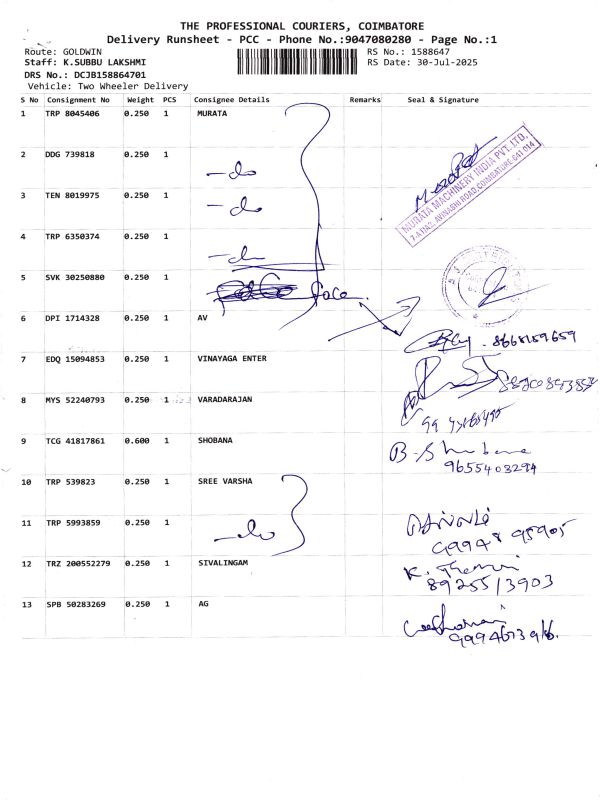 THE PROFESSIONAL COURIERS, COIMBATORE
Delivery Runsheet - PCC - Phone No.:9047080280 - Page No.:1
Route: GOLDWIN RS No.: 1588647
Staff: K.SUBBU LAKSHMI RS Date: 30-Jul-2025
DRS No.: DCJB158864701
Vehicle: Two Wheeler Delivery
S No Consignment No Weight PCS Consignee Details Remarks Seal & Signature
1 TRP 8045406 0.250 1 MURATA
MURATA MACHINERY INDIA PVT. LTD.
7-A1/A2, AVINASHI ROAD, COIMBATORE-641 014
2 DDG 739818 0.250 1 -do
3 TEN 8019975 0.250 1 -do
4 TRP 6350374 0.250 1 -do
5 SVK 30250880 0.250 1 face
6 DPI 1714328 0.250 1 AV
8668159659
7 EDQ 15094853 0.250 1 VINAYAGA ENTER
8 MYS 52240793 0.250 1 VARADARAJAN
9 TCG 41817861 0.600 1 SHOBANA B-Shobana
9655403294
10 TRP 539823 0.250 1 SREE VARSHA
11 TRP 5993859 0.250 1 -do
99948 95905
12 TRZ 200552279 0.250 1 SIVALINGAM K.
8925513903
13 SPB 50283269 0.250 1 AG